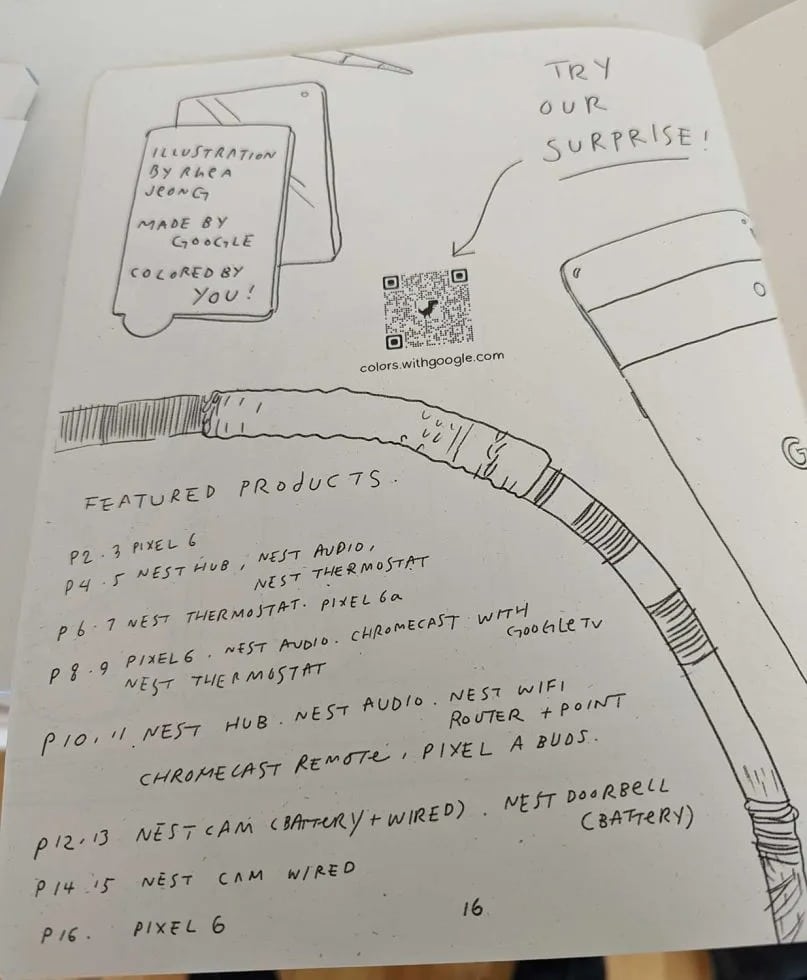 TRY
OUR
SURPRISE!
ILLUSTRATION
BY RHEA
JEONG
MADE BY
GOOGLE
COLORED BY
YOU!
colors.withgoogle.com
G
FEATURED PRODUCTS.
P2.3 PIXEL 6
P4.5 NEST HUB, NEST AUDIO,
NEST THERMOSTAT
P6.7 NEST THERMOSTAT. PIXEL 6a
P8.9 PIXEL 6. NEST AUDIO. CHROMECAST WITH
GOOGLE TV
NEST THERMOSTAT
P10.11. NEST HUB. NEST AUDIO. NEST WIFI
ROUTER + POINT
CHROMECAST REMOTE, PIXEL A BUDS.
P12.13 NEST CAM (BATTERY + WIRED). NEST DOORBELL
(BATTERY)
P14.15 NEST CAM WIRED
P16. PIXEL 6
16